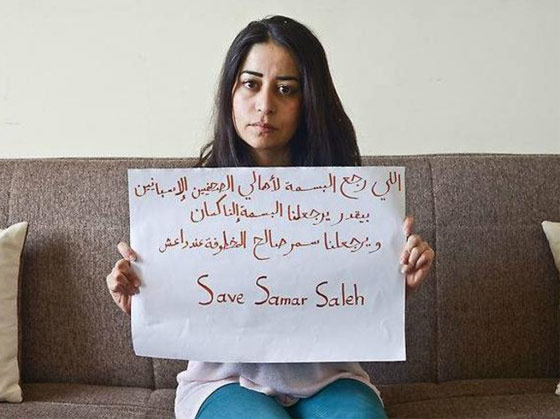 اللي رجع البسمة لأهالي الصحفيين الإسبانيين
بيقدر يرجعلنا البسمة إلنا كمان
ويرجعلنا سمر صالح المخطوفة عند داعش
Save Samar Saleh